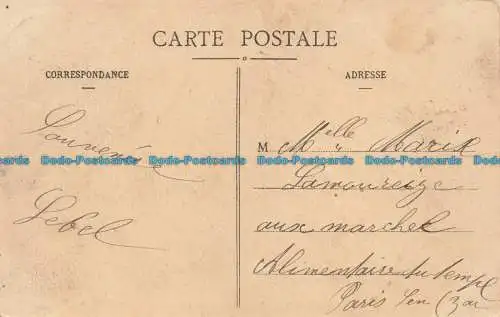 CARTE POSTALE
CORRESPONDANCE
ADRESSE
Souvenir
Lebel
M Melle Marie
Lamoureize
aux marchel
Alimentaire du templ
Paris
Dodo-Postcards Dodo-Postcards Dodo-Postcards Dodo-Postcards Dodo-Postcards Dodo-Postcards